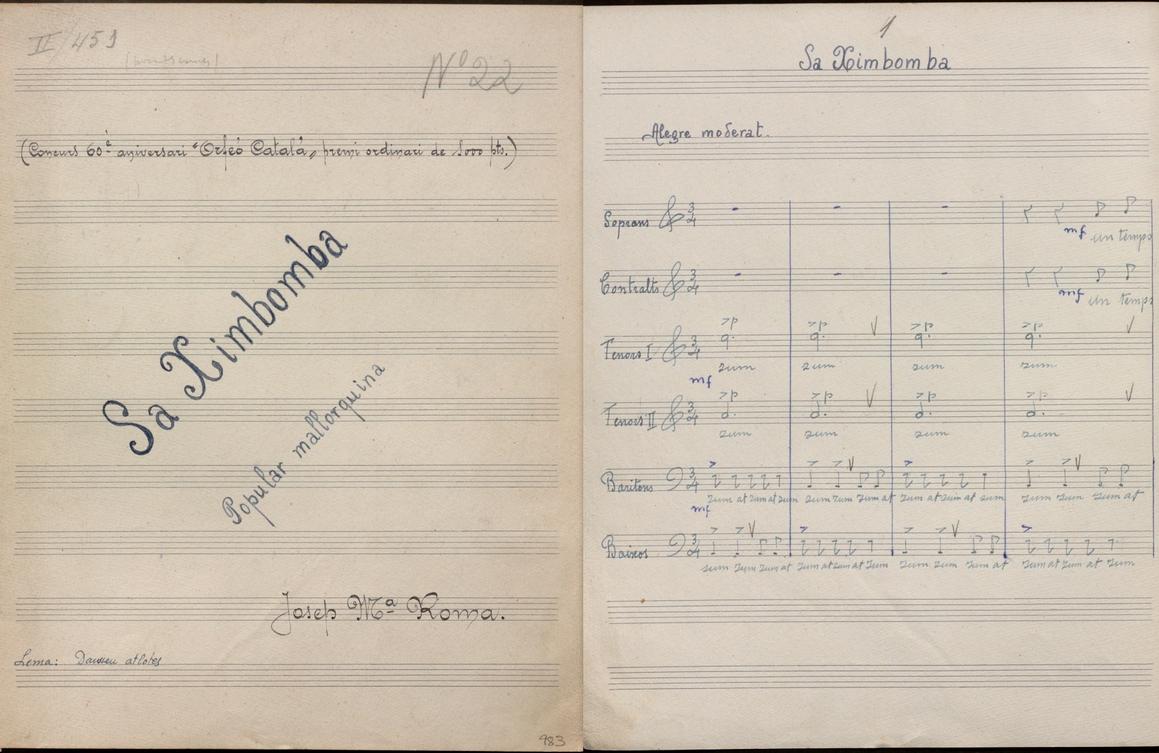 II/451
Nº 22
(Concurs 60è aniversari "Orfeó Català", premi ordinari de 5000 pts.)
Sa Ximbomba
Popular mallorquina
Josep Mª Roma.
Lema: atlotes
983
1
Sa Ximbomba
Alegre moderat.
Soprans 3/4 mf un temps
Contralts 3/4 mf un temps
Tenors I 3/4 >p >p >p >p
zum zum zum zum
mf
Tenors II 3/4 >p >p >p >p
zum zum zum zum
Baritons 3/4
zum at zum at zum zum zum zum at zum at zum at zum zum zum zum at
mf
Baixos 3/4
zum zum zum at zum at zum at zum zum zum zum at zum at zum at zum